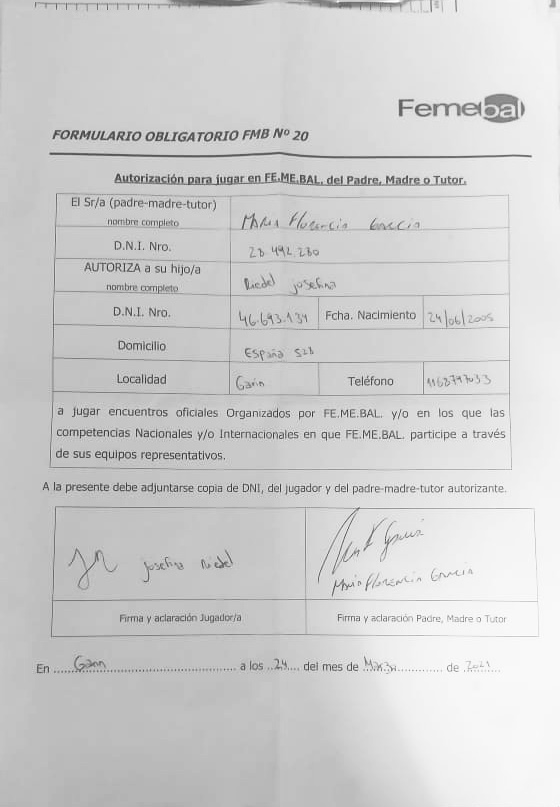 Femebal
FORMULARIO OBLIGATORIO FMB Nº 20
Autorización para jugar en FE.ME.BAL. del Padre, Madre o Tutor.
El Sr/a (padre-madre-tutor)
nombre completo
Maria Florencia Garcia
D.N.I. Nro.
28.492.280
AUTORIZA a su hijo/a
nombre completo
Riedel josefina
D.N.I. Nro.
46.693.134
Fcha. Nacimiento
24/06/2005
Domicilio
España 528
Localidad
Garin
Teléfono
1168747033
a jugar encuentros oficiales Organizados por FE.ME.BAL. y/o en los que las
competencias Nacionales y/o Internacionales en que FE.ME.BAL. participe a través
de sus equipos representativos.
A la presente debe adjuntarse copia de DNI, del jugador y del padre-madre-tutor autorizante.
josefina Riedel
Maria Florencia Garcia
Firma y aclaración Jugador/a
Firma y aclaración Padre, Madre o Tutor
En Garin a los 24 del mes de Marzo de 2021